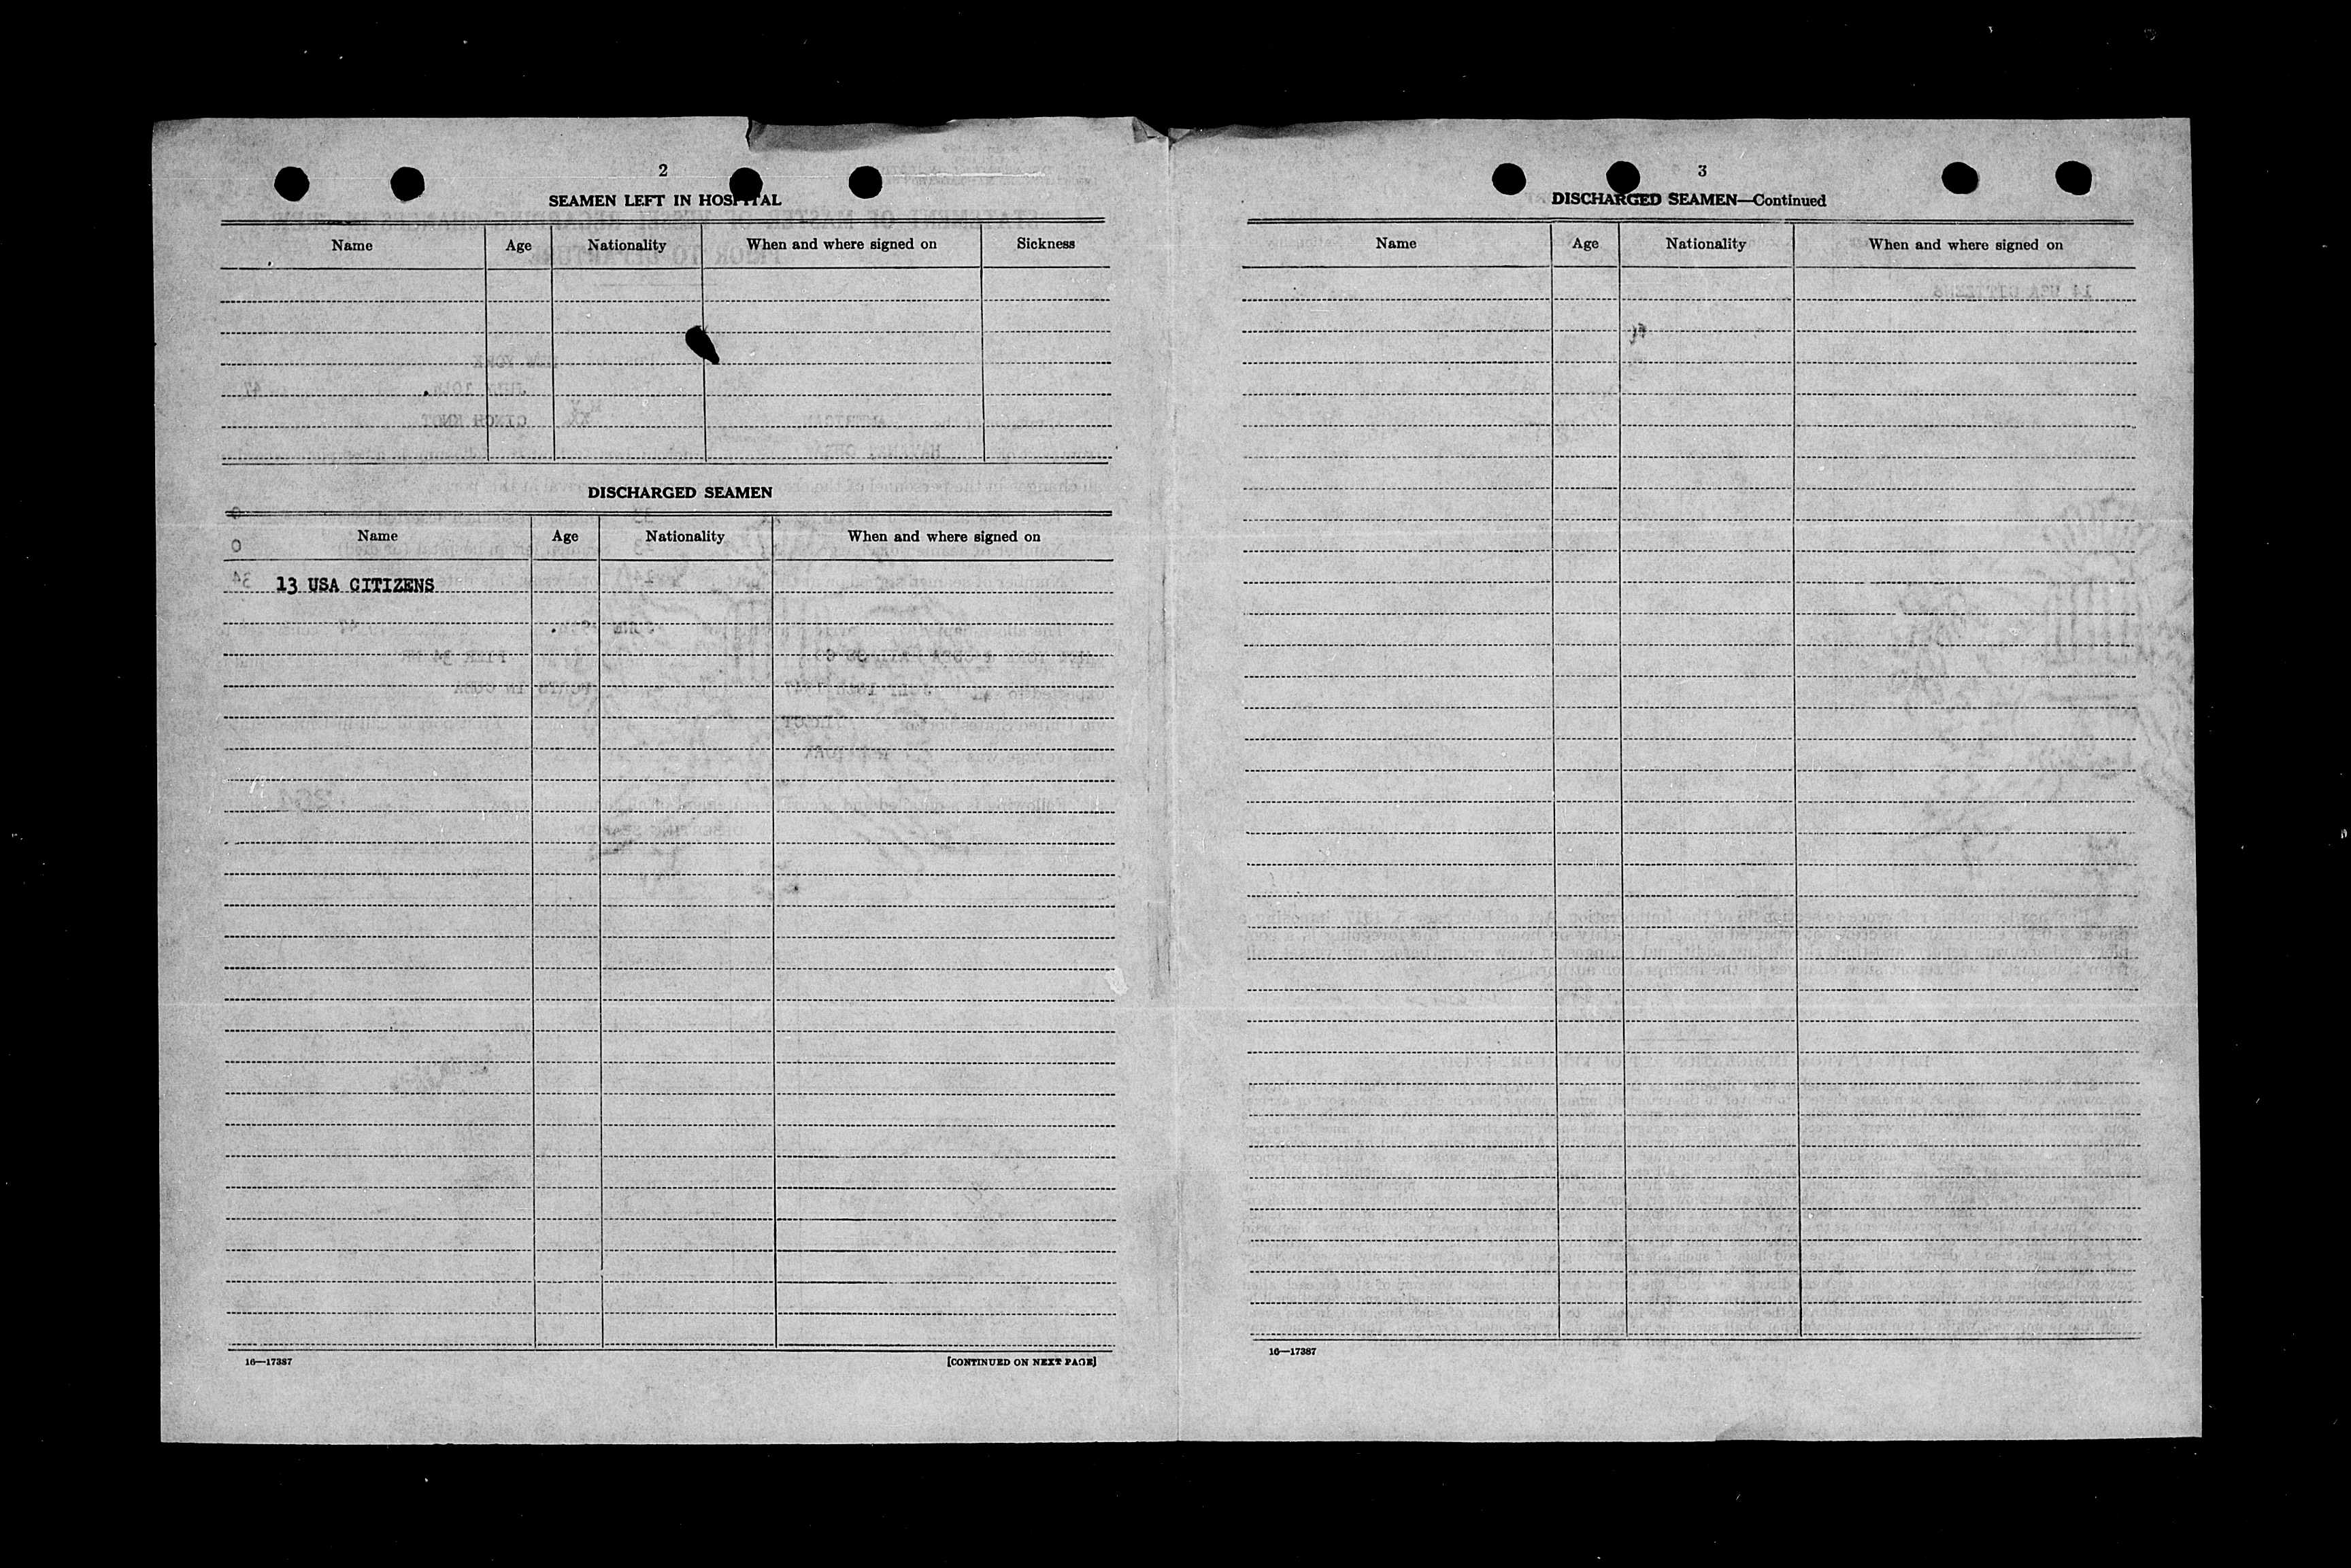 2
SEAMEN LEFT IN HOSPITAL
Name Age Nationality When and where signed on Sickness
DISCHARGED SEAMEN
Name Age Nationality When and where signed on
13 USA CITIZENS
16—17387 [CONTINUED ON NEXT PAGE]
3
DISCHARGED SEAMEN—Continued
Name Age Nationality When and where signed on
16—17387